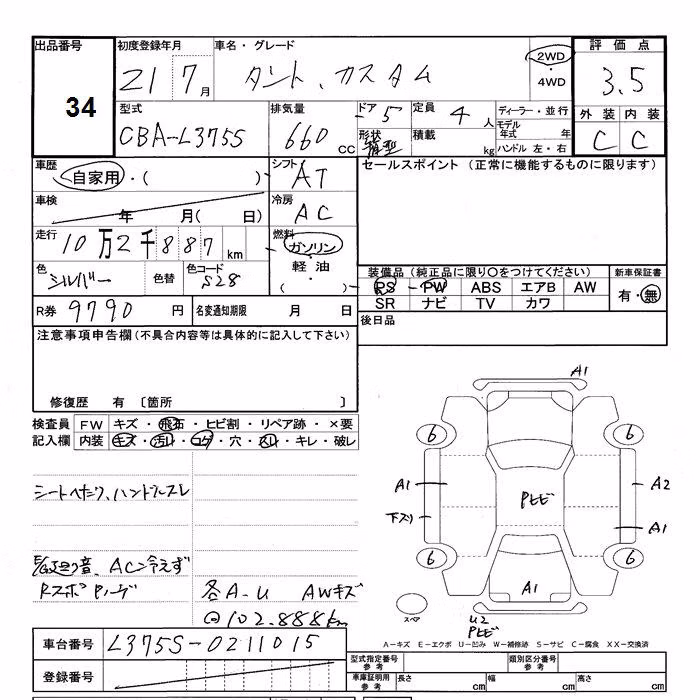 出品番号 初度登録年月 車名・グレード 評価点
34 21 7月 タント、カスタム 2WD ・ 4WD 3.5
型式 排気量 ドア 5 定員 4人 ディーラー・並行 外装 内装
CBA-L375S 660 CC 形状 箱型 積載 kg モデル年式 年 ハンドル 左・右 C C
車歴 自家用・( ) シフト AT セールスポイント (正常に機能するものに限ります)
車検 年 月( 日) 冷房 AC
走行 10万2千887km 燃料 ガソリン・軽油・( )
色 シルバー 色替 色コード S28 装備品 (純正品に限り○をつけてください) 新車保証書
PS PW ABS エアB AW 有・無
SR ナビ TV カワ
R券 9790円 名変通知期限 月 日 後日品
注意事項申告欄(不具合内容等は具体的に記入して下さい)
修復歴 有 〔箇所 〕
検査員 FW キズ・飛石・ヒビ割・リペア跡・×要
記入欄 内装 キズ・汚レ・コゲ・穴・スレ・キレ・破レ
シートヘタリ、ハンドルスレ
音、AC冷えず
各A-U AWキズ
102.888km
A1
6 6
A1 A2
下スリ A1
6 6
A1
スペア
U2
A-キズ E-エクボ U-凹み W-補修跡 S-サビ C-腐食 XX-交換済
車台番号 L375S-0211015
登録番号
型式指定番号 参考 類別区分番号 参考
車庫証明用 参考 長さ cm 幅 cm 高さ cm